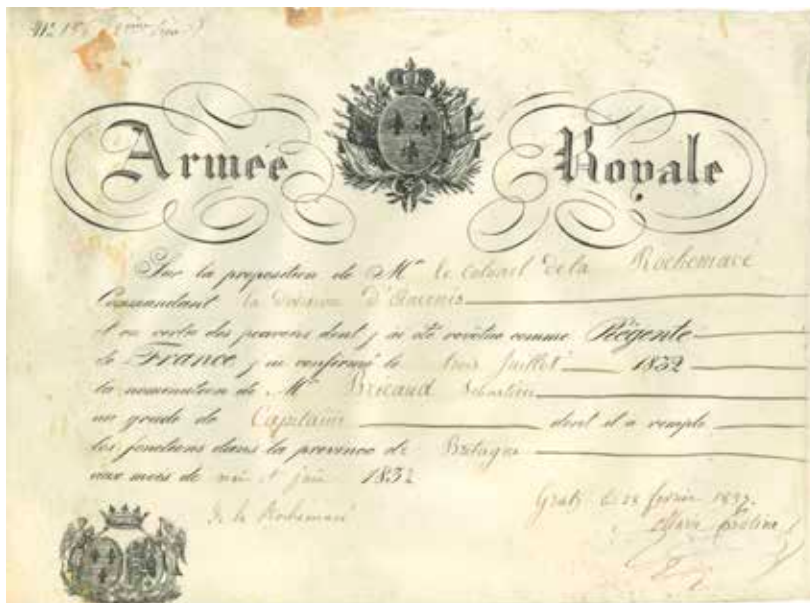 Armée Royale
Sur la proposition de Mr. le Colonel de la Rochemacé
Commandant la division d'Ancenis
et en vertu des pouvoirs dont j'ai été revêtue comme Régente
de France j'ai confirmé le trois Juillet 1832
la nomination de Mr. Bricaud Sébastien
au grade de Capitaine dont il a rempli
les fonctions dans la province de Bretagne
aux mois de mai et juin 1832
Gratz le février
de la Rochemacé
Marie Caroline